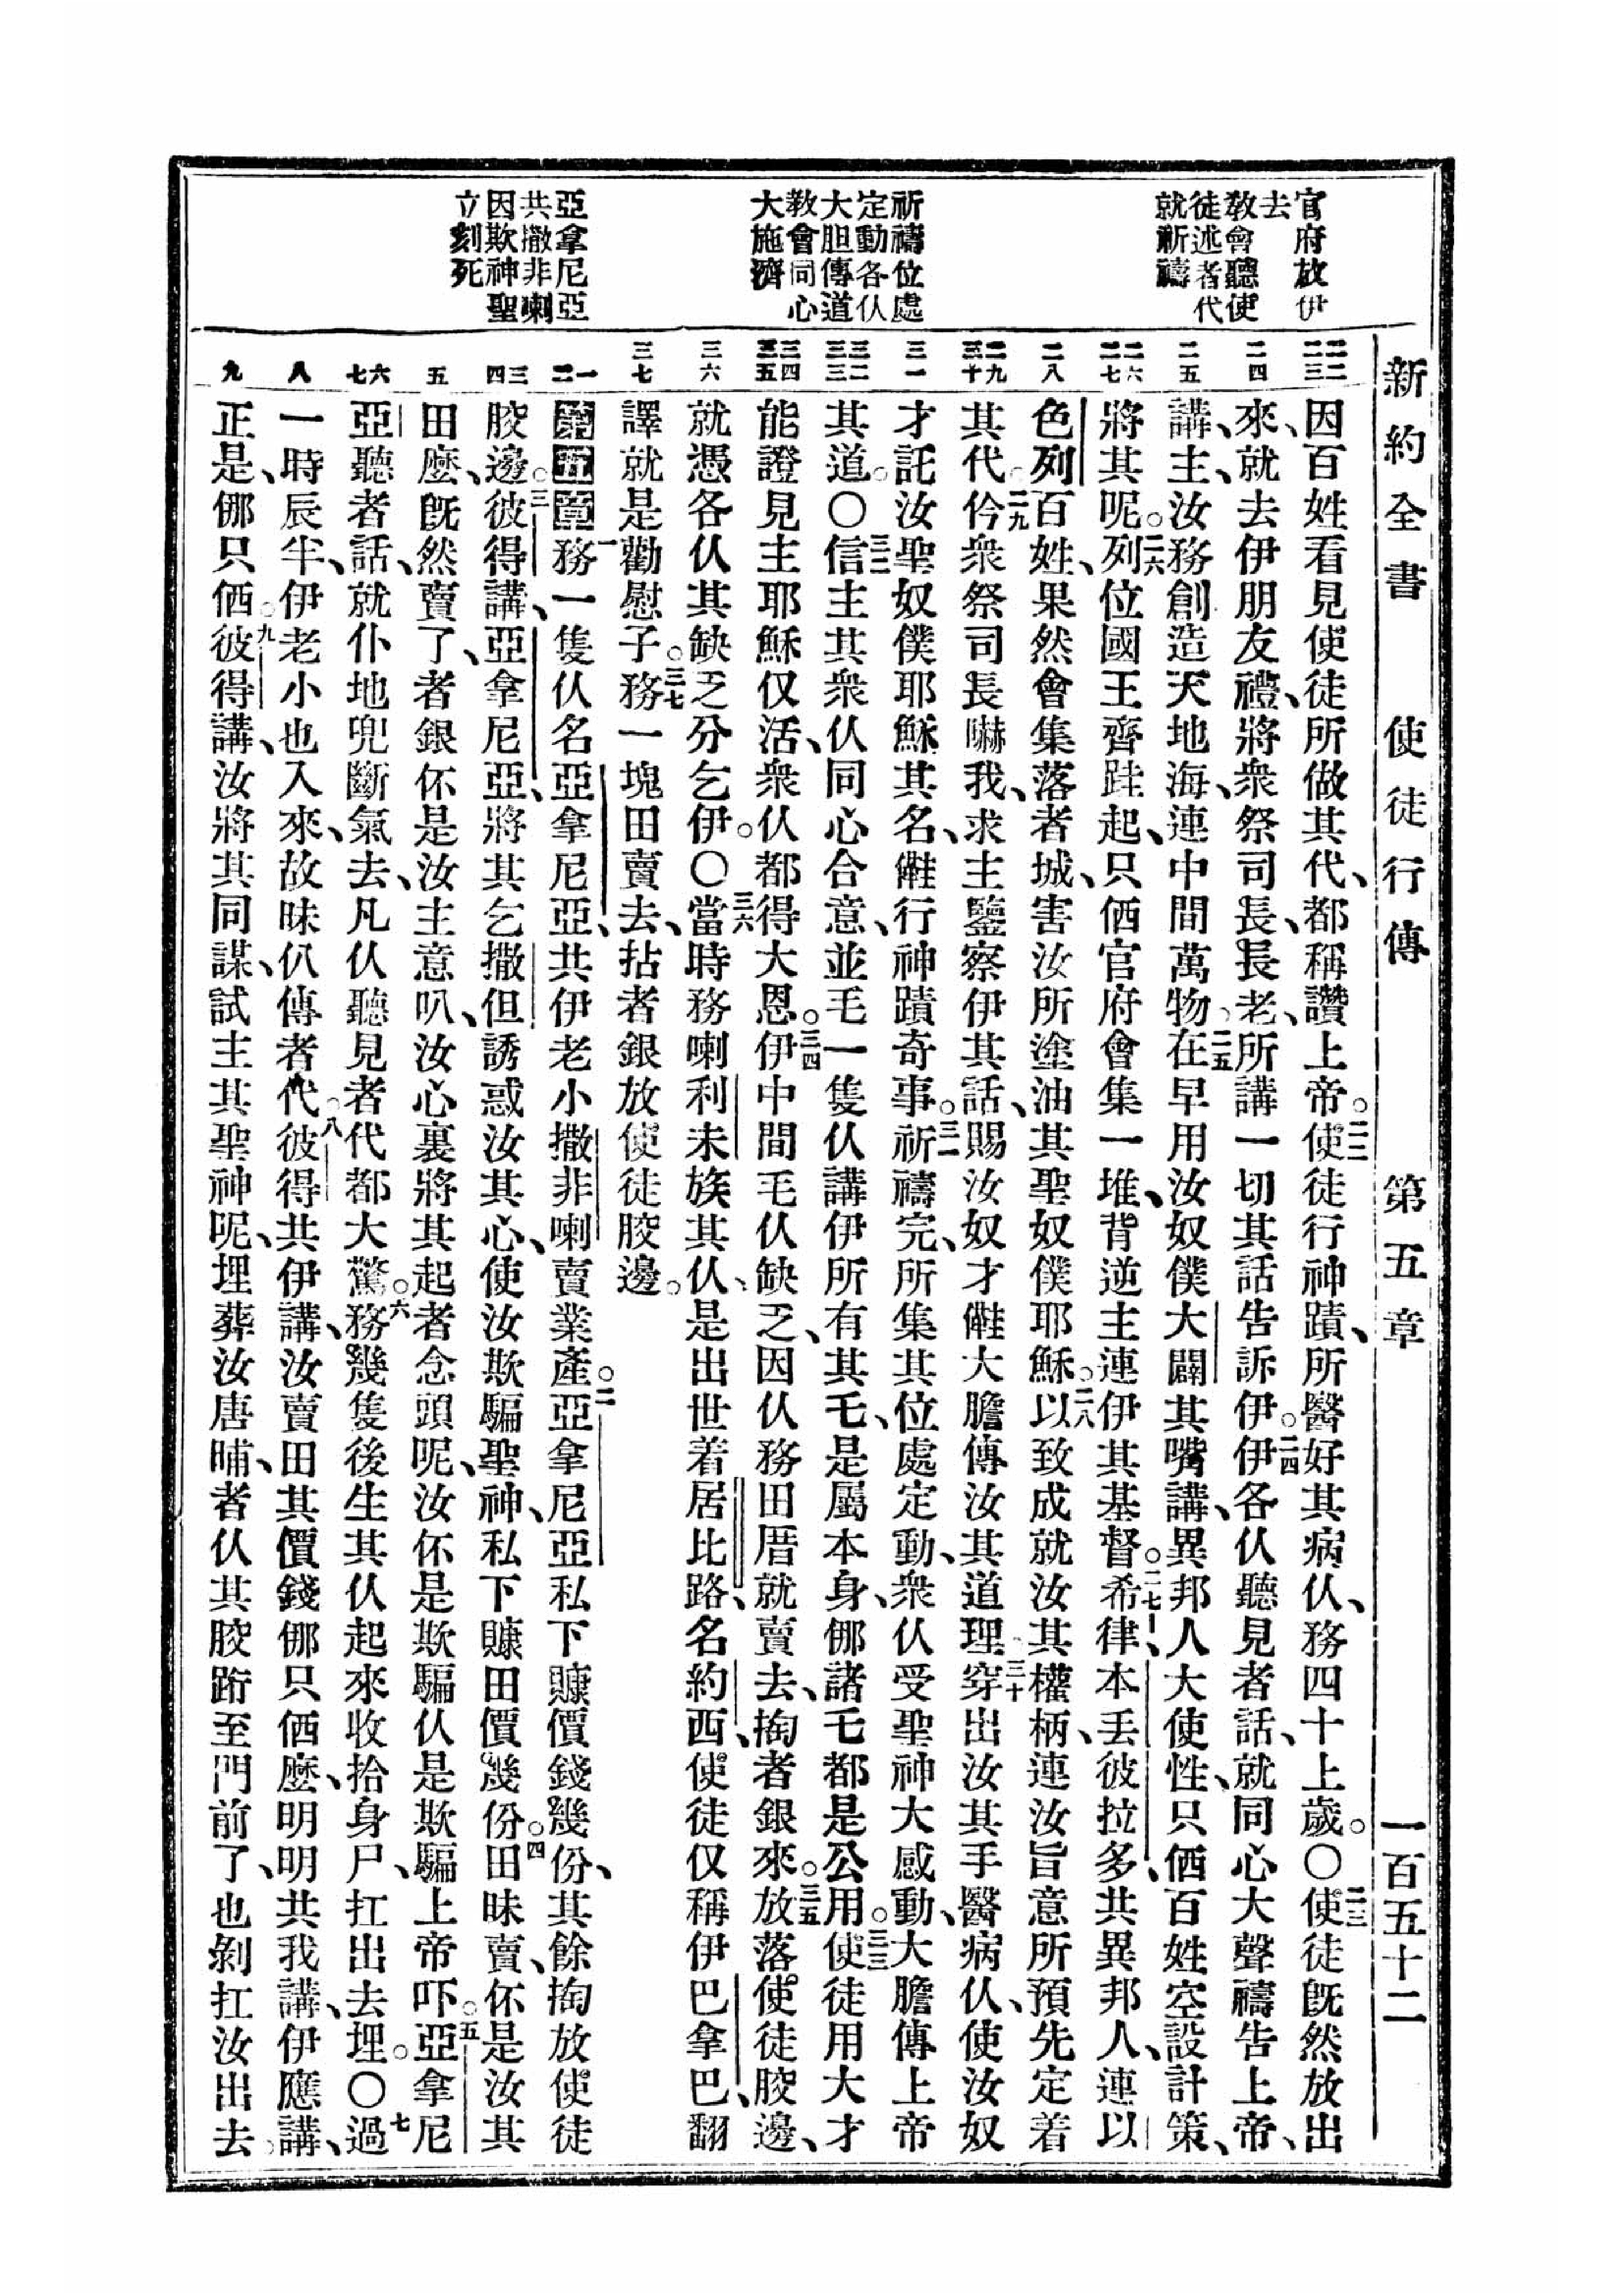 新約全書 使徒行傳 第五章 一百五十二
官府放伊
去
教會聽使
徒述者代
就祈禱
祈禱位處
定動各仈
大胆傳道
教會同心
大施濟
亞拿尼亞
共撒非喇
因欺神聖
立刻死
二二 二三
二四
二五
二六 二七
二八
二九 三十
三一
三二 三三
三四 三五
三六
三七
一 二
三 四
五
六 七
八
九
因百姓看見使徒所做其代、都稱讚上帝。二二使徒行神蹟、所醫好其病仈、務四十上歲。〇二三使徒旣然放出
來、就去伊朋友禮、將衆祭司長、長老、所講一切其話告訴伊。二四伊各仈聽見者話、就同心大聲禱告上帝、
講、主、汝務創造天地海、連中間萬物。二五在早用汝奴僕大闢其嘴講、異邦人大使性、只俖百姓空設計策、
將其呢。二六列位國王齊跬起、只俖官府會集一堆、背逆主連伊其基督。二七希律、本丢彼拉多、共異邦人、連以
色列百姓、果然會集落者城、害汝所塗油其聖奴僕耶穌。二八以致成就汝其權柄、連汝旨意所預先定着
其代。二九伶衆祭司長嚇我、求主鑒察伊其話、賜汝奴才㒗大膽傳汝其道理。三十穿出汝其手醫病仈、使汝奴
才託汝聖奴僕耶穌其名、㒗行神蹟奇事。三一祈禱完、所集其位處定動、衆仈受聖神大感動、大膽傳上帝
其道。〇三二信主其衆仈同心合意、並毛一隻仈講伊所有其乇、是屬本身、㑚諸乇都是公用。三三使徒用大才
能證見主耶穌仅活、衆仈都得大恩。三四伊中間毛仈缺乏、因仈務田厝就賣去、掏者銀來。三五放落使徒骹邊、
就憑各仈其缺乏分乞伊。〇三六當時務喇利未族其仈、是出世着居比路、名約西、使徒仅稱伊巴拿巴、翻
譯就是勸慰子。三七務一塊田賣去、拈者銀放使徒骹邊。
第五章 一務一隻仈名亞拿尼亞、共伊老小撒非喇賣業產。二亞拿尼亞私下賺價錢幾份、其餘掏放使徒
骹邊。三彼得講、亞拿尼亞、將其乞撒但誘惑汝其心、使汝欺騙聖神、私下賺田價幾份。四田昧賣、伓是汝其
田麽、旣然賣了、者銀伓是汝主意叭、汝心裏將其起者念頭呢、汝伓是欺騙仈是欺騙上帝吓。五亞拿尼
亞聽者話、就仆地兜斷氣去、凡仈聽見者代都大驚。六務幾隻後生其仈起來收拾身尸、扛出去埋。〇七過
一時辰半、伊老小也入來、故昧仈傳者代。八彼得共伊講、汝賣田其價錢㑚只俖麽、明明共我講、伊應講、
正是、㑚只俖。九彼得講、汝將其同謀、試主其聖神呢、埋葬汝唐晡、者仈其骹跡至門前了、也剝扛汝出去。